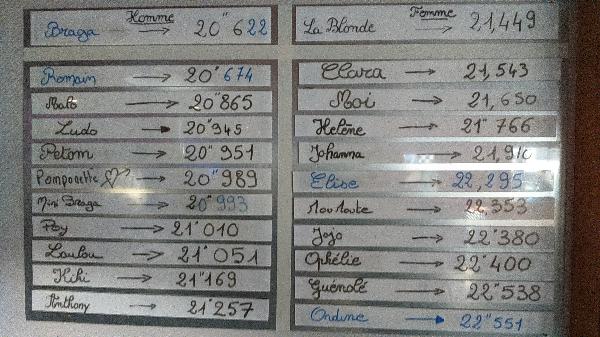 Homme
Braga → 20"622
Romain → 20"674
Malo → 20"865
Ludo → 20"945
Petom → 20"951
Pomponette → 20"989
Mini Braga → 20"993
Roy → 21"010
Loulou → 21"051
Kiki → 21"169
Anthony → 21"257
Femme
La Blonde → 21,449
Clara → 21,543
Moi → 21,650
Helene → 21"766
Johanna → 21,91
Elise → 22,295
Moumoute → 22,353
Jojo → 22"380
Ophélie → 22"400
Guénolé → 22"538
Ondine → 22"551